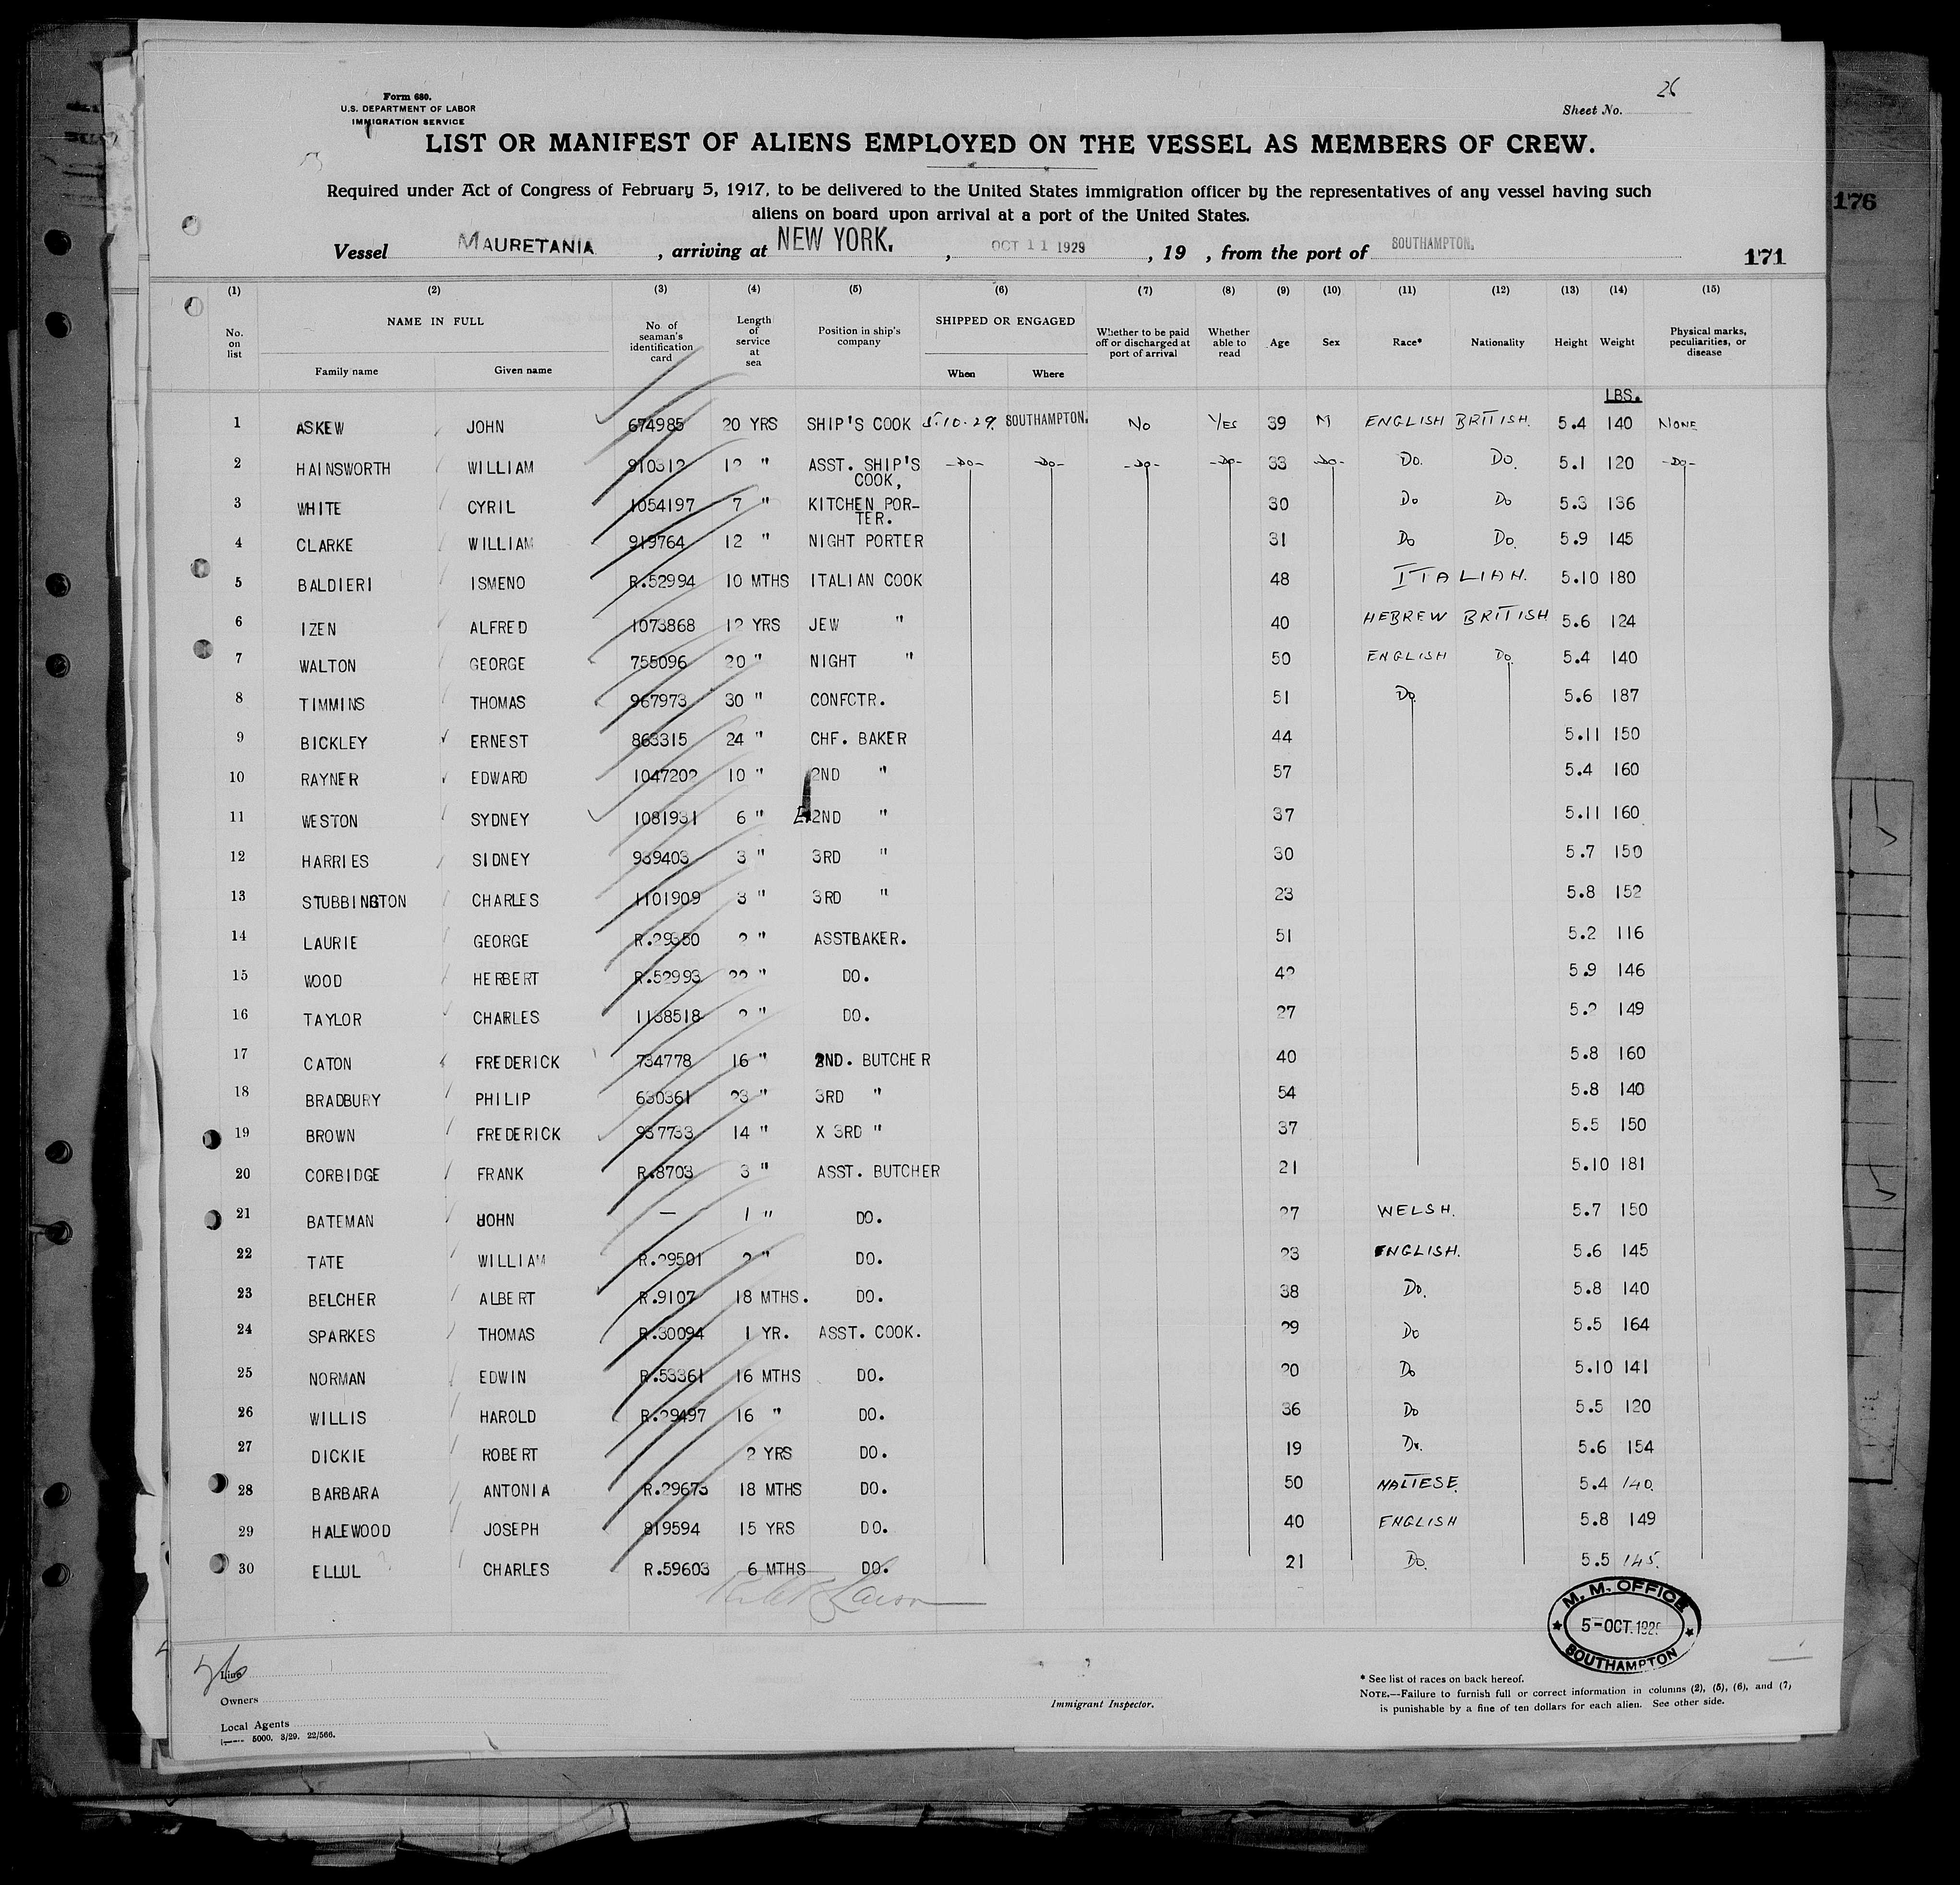 Form 680.
U.S. DEPARTMENT OF LABOR
IMMIGRATION SERVICE
Sheet No. 26
LIST OR MANIFEST OF ALIENS EMPLOYED ON THE VESSEL AS MEMBERS OF CREW.
Required under Act of Congress of February 5, 1917, to be delivered to the United States immigration officer by the representatives of any vessel having such
aliens on board upon arrival at a port of the United States.
176
Vessel MAURETANIA, arriving at NEW YORK., OCT 11 1929, 19 , from the port of SOUTHAMPTON. 171
(1) (2) (3) (4) (5) (6) (7) (8) (9) (10) (11) (12) (13) (14) (15)
No. on list NAME IN FULL Family name Given name No. of seaman's identification card Length of service at sea Position in ship's company SHIPPED OR ENGAGED When Where Whether to be paid off or discharged at port of arrival Whether able to read Age Sex Race* Nationality Height Weight Physical marks, peculiarities, or disease
LBS.
1 ASKEW JOHN 674985 20 YRS SHIP'S COOK 5.10.29. SOUTHAMPTON. No YES 39 M ENGLISH BRITISH. 5.4 140 NONE
2 HAINSWORTH WILLIAM 910312 12 " ASST. SHIP'S COOK, -DO- -DO- -DO- -DO- 33 -DO- Do. Do. 5.1 120 -DO-
3 WHITE CYRIL 1054197 7 " KITCHEN POR-TER. 30 Do Do 5.3 136
4 CLARKE WILLIAM 919764 12 " NIGHT PORTER 31 Do Do. 5.9 145
5 BALDIERI ISMENO R.52994 10 MTHS ITALIAN COOK 48 ITALIAN. 5.10 180
6 IZEN ALFRED 1073868 12 YRS JEW " 40 HEBREW BRITISH 5.6 124
7 WALTON GEORGE 755096 20 " NIGHT " 50 ENGLISH Do. 5.4 140
8 TIMMINS THOMAS 967973 30 " CONFCTR. 51 Do. 5.6 187
9 BICKLEY ERNEST 863315 24 " CHF. BAKER 44 5.11 150
10 RAYNER EDWARD 1047202 10 " 2ND " 57 5.4 160
11 WESTON SYDNEY 1081931 6 " 2ND " 37 5.11 160
12 HARRIES SIDNEY 939403 3 " 3RD " 30 5.7 150
13 STUBBINGTON CHARLES 1101909 3 " 3RD " 23 5.8 152
14 LAURIE GEORGE R.29350 2 " ASSTBAKER. 51 5.2 116
15 WOOD HERBERT R.52993 22 " DO. 42 5.9 146
16 TAYLOR CHARLES 1138518 2 " DO. 27 5.2 149
17 CATON FREDERICK 734778 16 " 2ND. BUTCHER 40 5.8 160
18 BRADBURY PHILIP 630361 23 " 3RD " 54 5.8 140
19 BROWN FREDERICK 937733 14 " X 3RD " 37 5.5 150
20 CORBIDGE FRANK R.8703 3 " ASST. BUTCHER 21 5.10 181
21 BATEMAN JOHN — 1 " DO. 27 WELSH. 5.7 150
22 TATE WILLIAM R.29501 2 " DO. 23 ENGLISH. 5.6 145
23 BELCHER ALBERT R.9107 18 MTHS. DO. 38 Do. 5.8 140
24 SPARKES THOMAS R.30094 1 YR. ASST. COOK. 29 Do 5.5 164
25 NORMAN EDWIN R.53361 16 MTHS DO. 20 Do 5.10 141
26 WILLIS HAROLD R.29497 16 " DO. 36 Do 5.5 120
27 DICKIE ROBERT 2 YRS DO. 19 Do. 5.6 154
28 BARBARA ANTONIA R.29673 18 MTHS DO. 50 MALTESE. 5.4 140.
29 HALEWOOD JOSEPH 819594 15 YRS DO. 40 ENGLISH 5.8 149
30 ELLUL CHARLES R.59603 6 MTHS DO. 21 Do. 5.5 145.
M. M. OFFICE
5-OCT.1929
SOUTHAMPTON
Line
Owners
Local Agents
5000. 3/29. 22/566.
Immigrant Inspector.
* See list of races on back hereof.
NOTE.—Failure to furnish full or correct information in columns (2), (5), (6), and (7)
is punishable by a fine of ten dollars for each alien. See other side.